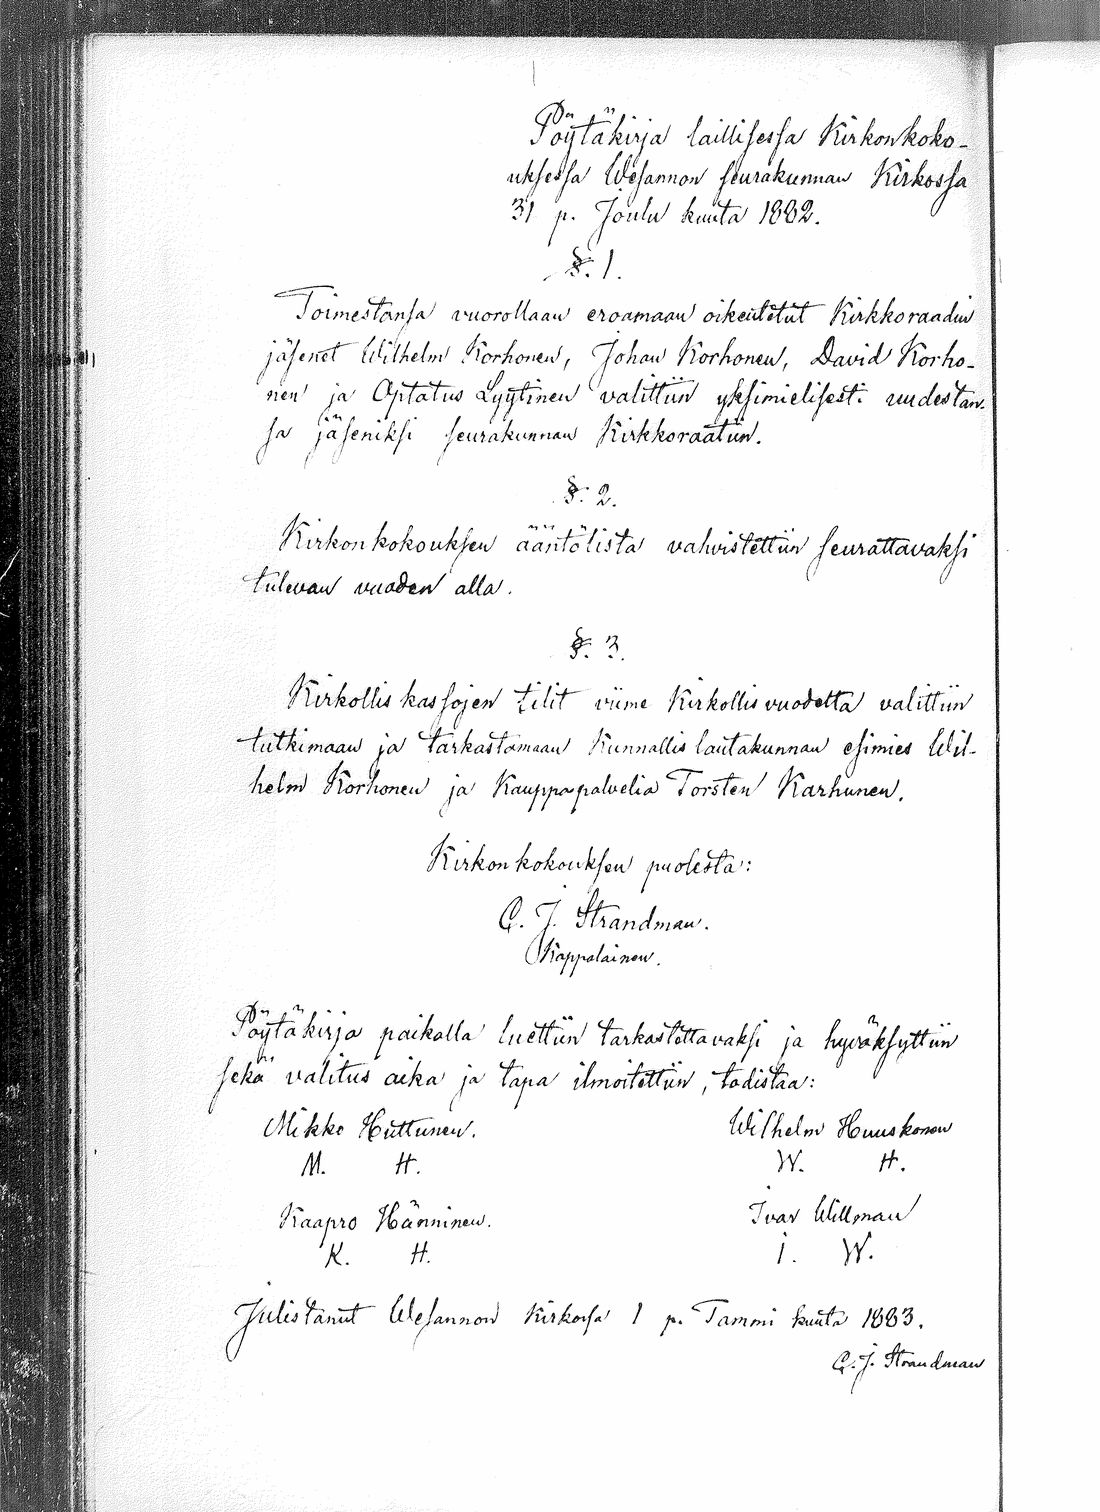 Pöytäkirja laillisessa Kirkonkoko-
uksessa Wesannon seurakunnan Kirkossa
31 p. Joulu kuuta 1882.
§. 1.
Toimestansa vuorollaan eroamaan oikeutetut Kirkkoraadin
jäsenet Wilhelm Korhonen, Johan Korhonen, David Korho-
nen ja Optatus Lyytinen valittiin yksimielisesti uudestan-
sa jäseniksi seurakunnan Kirkkoraatiin.
§. 2.
Kirkonkokouksen ääntölista vahvistettiin seurattavaksi
tulevan vuoden alla.
§. 3.
Kirkollis kassojen tilit viime Kirkollisvuodelta valittiin
tutkimaan ja tarkastamaan Kunnallislautakunnan esimies Wil-
helm Korhonen ja Kauppapalvelia Torsten Karhunen.
Kirkonkokouksen puolesta:
C. J. Strandman.
Kappalainen.
Pöytäkirja paikalla luettiin tarkastettavaksi ja hyväksyttiin
sekä valitus aika ja tapa ilmoitettiin, todistaa:
Mikko Huttunen. Wilhelm Huuskonen
M. H. W. H.
Kaapro Hänninen. Ivar Willman
K. H. I. W.
Julistanut Wesannon Kirkossa 1 p. Tammi kuuta 1883.
C. J. Strandman